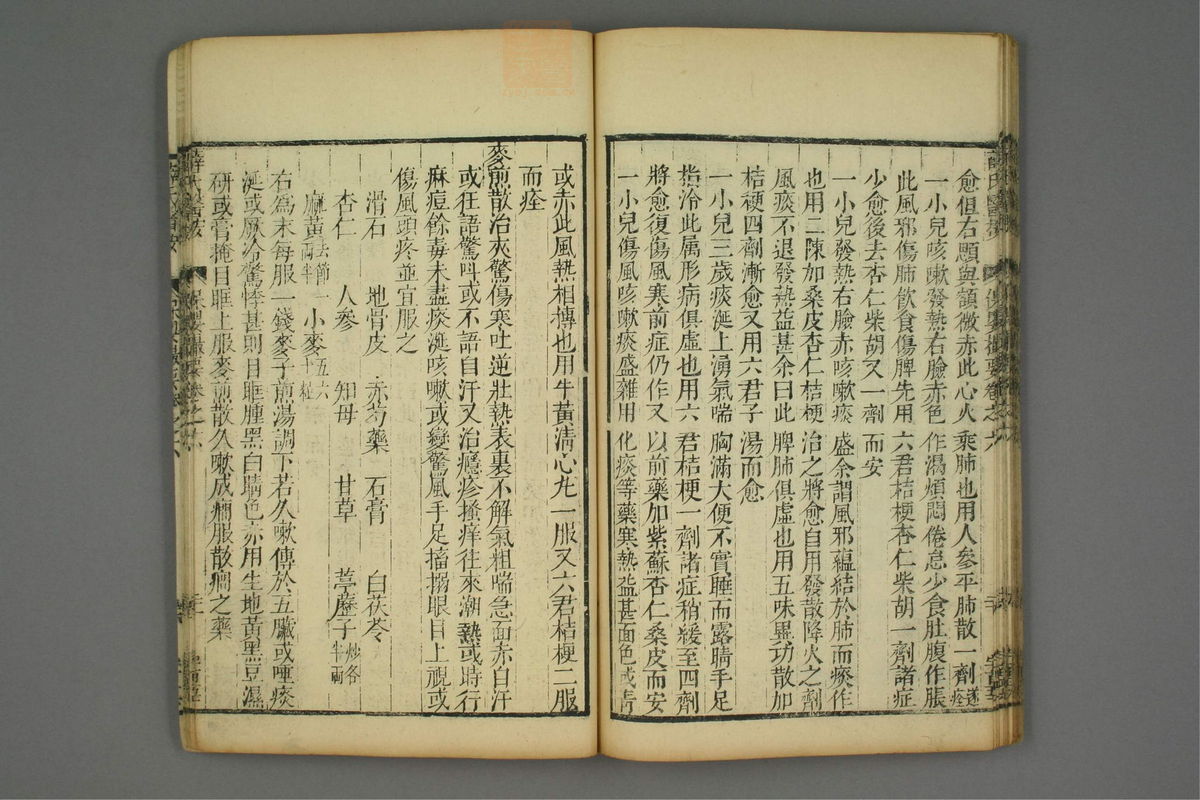 愈但右顋與額微赤此心火乘肺也用人參平肺散一劑遂痊
一小兒咳嗽發熱右臉赤色作渴煩悶倦怠少食肚腹作脹
此風邪傷肺飲食傷脾先用六君桔梗杏仁柴胡一劑諸症
少愈後去杏仁柴胡又一劑而安
一小兒發熱右臉赤咳嗽痰盛余謂風邪蘊結於肺而痰作
也用二陳加桑皮杏仁桔梗治之將愈自用發散降火之劑
風痰不退發熱益甚余曰此脾肺俱虛也用五味異功散加
桔梗四劑漸愈又用六君子湯而愈
一小兒三歲痰涎上湧氣喘胸滿大便不實睡而露睛手足
指冷此属形病俱虛也用六君桔梗一劑諸症稍緩至四劑
將愈復傷風寒前症仍作又以前藥加紫蘇杏仁桑皮而安
一小兒傷風咳嗽痰盛雜用化痰等藥寒熱益甚面色或青
或赤此風熱相搏也用牛黃清心丸一服又六君桔梗二服
而痊
麥煎散治夾驚傷寒吐逆壯熱表裏不解氣粗喘急面赤自汗
或狂語驚叫或不語自汗又治癮疹搔痒往來潮熱或時行
麻痘餘毒未盡痰涎咳嗽或變驚風手足搐搦眼目上視或
傷風頭疼並宜服之
滑石 地骨皮 赤芍藥 石膏 白茯苓
杏仁 人參 知母 甘草 葶藶子炒各半兩
麻黃去節一兩半 小麥五六十粒
右為末每服一錢麥子煎湯調下若久嗽傳於五臟或唾痰
涎或厥冷驚悸甚則目眶腫黑白睛色赤用生地黃黑豆濕
研成膏掩目眶上服麥煎散久嗽成癇服散癇之藥